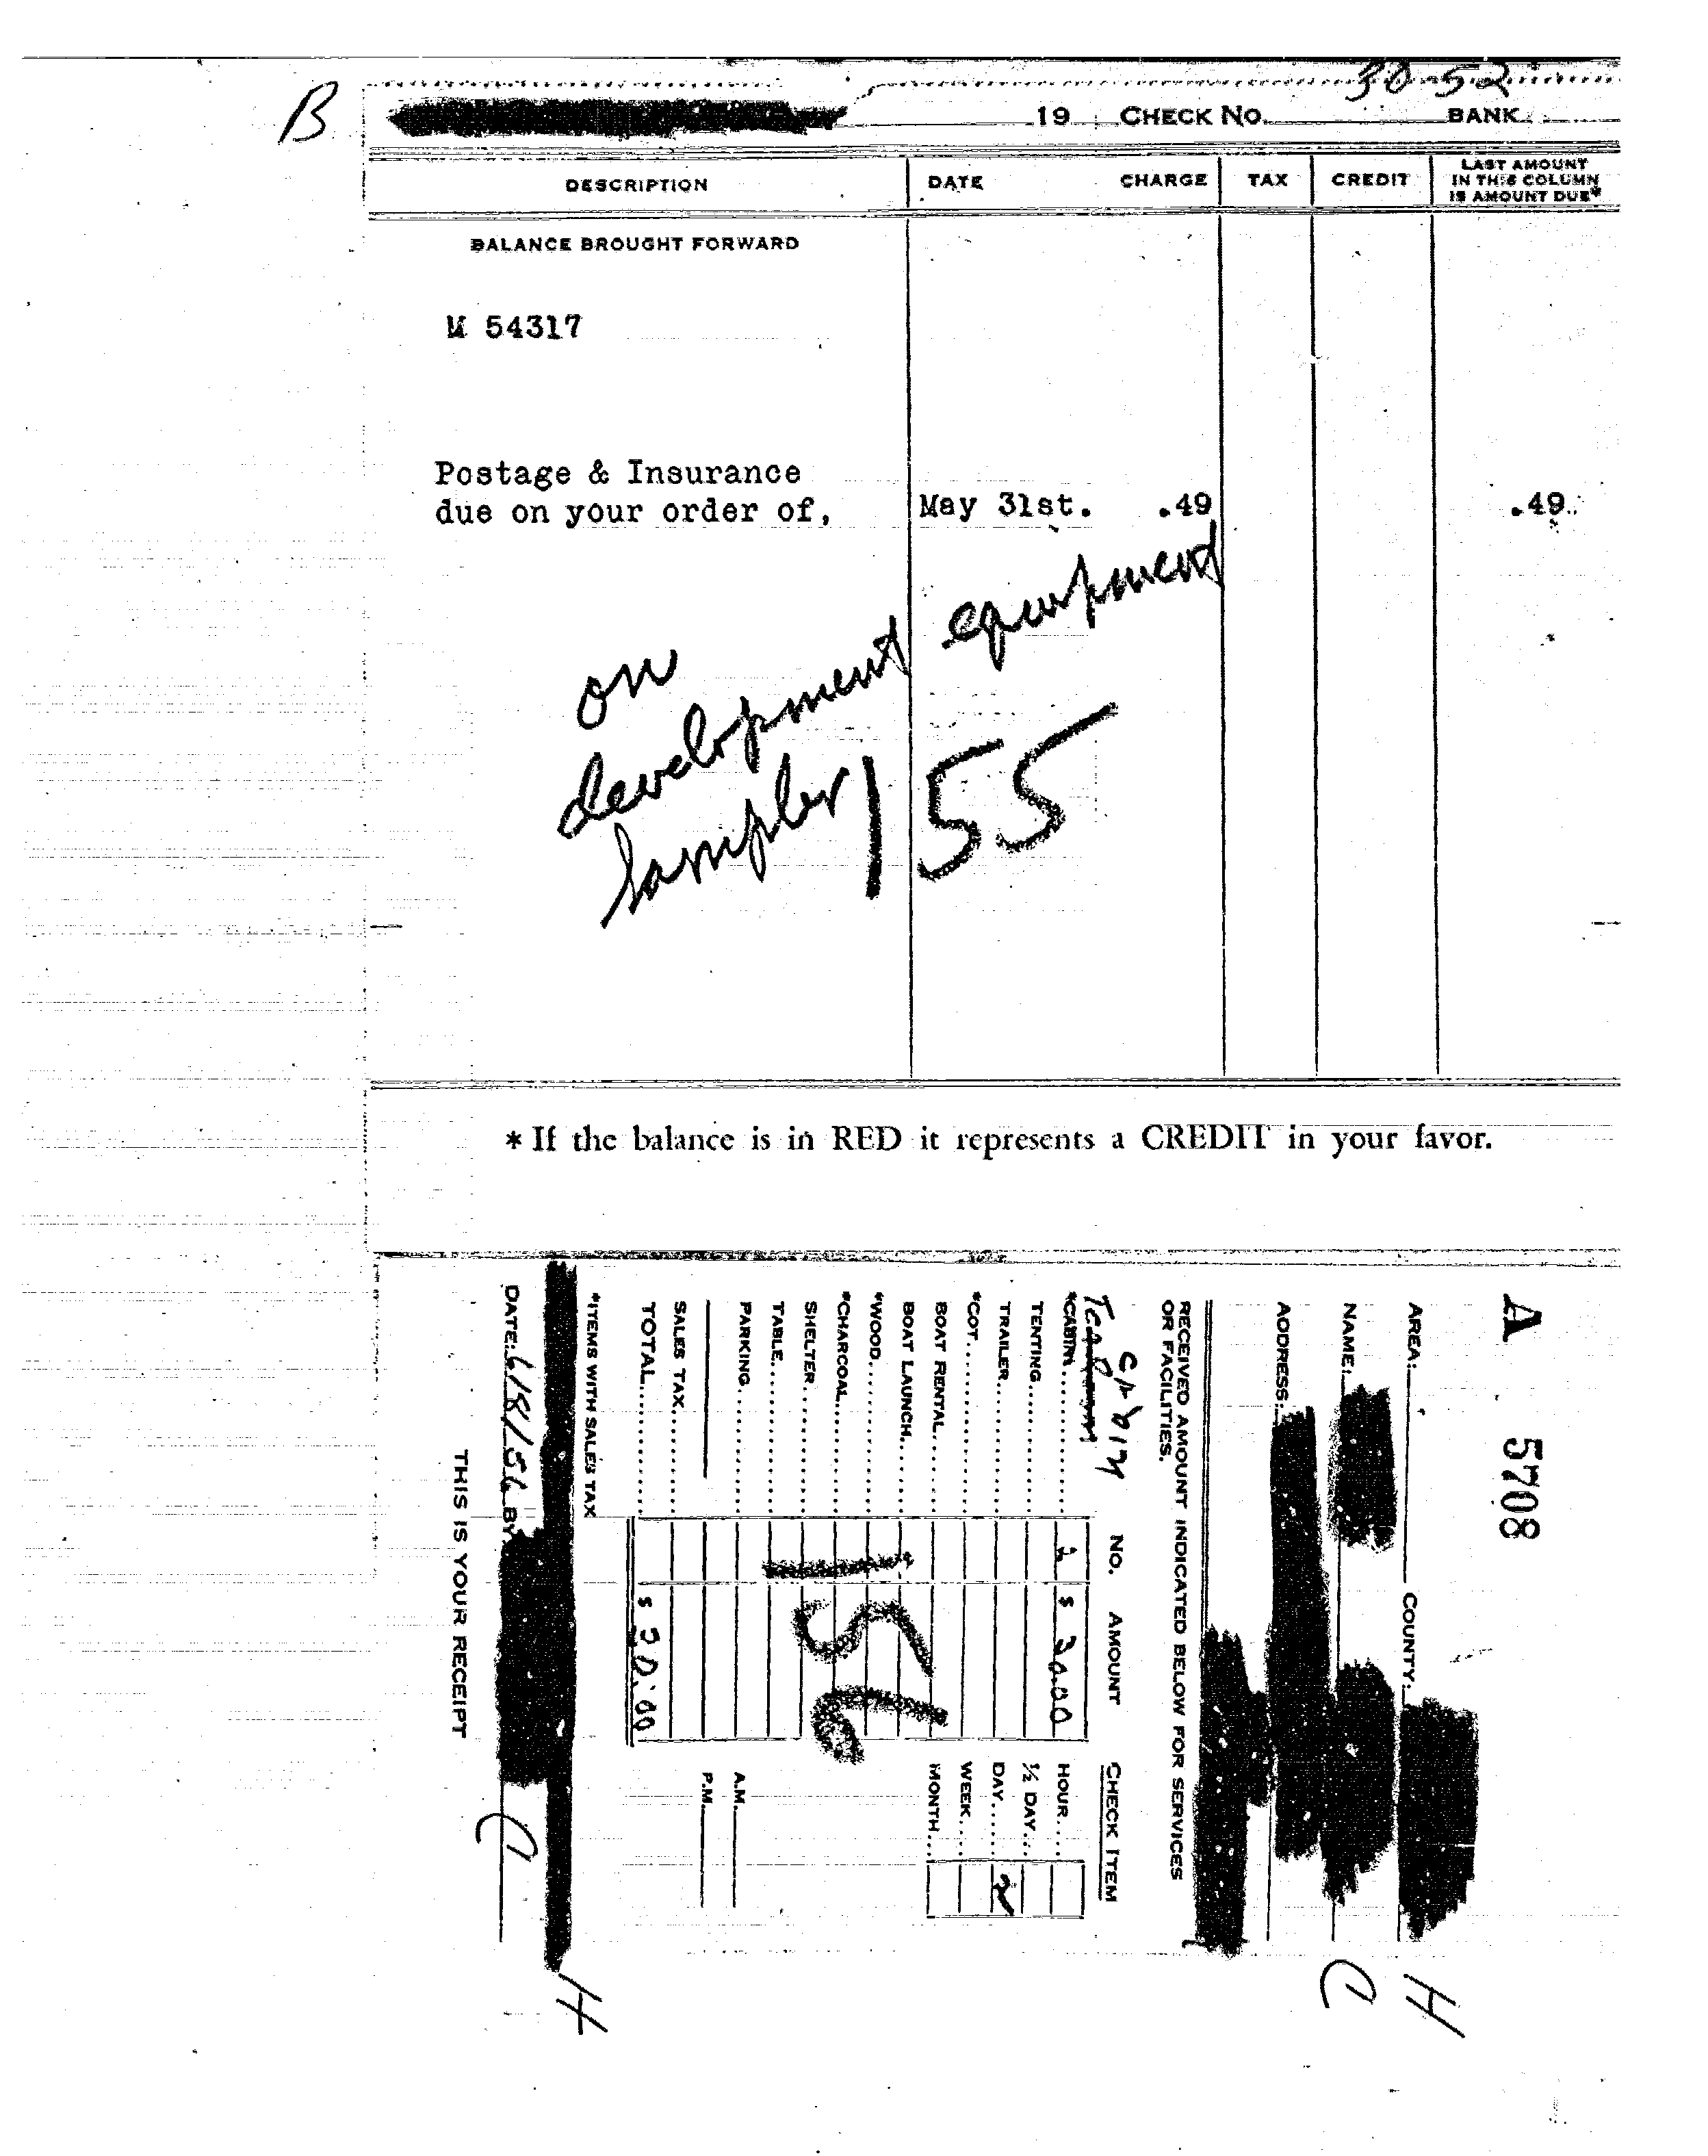 B
30-52
19 CHECK NO. BANK
DESCRIPTION DATE CHARGE TAX CREDIT LAST AMOUNT IN THIS COLUMN IS AMOUNT DUE*
BALANCE BROUGHT FORWARD
M 54317
Postage & Insurance
due on your order of, May 31st. .49 .49
on
development equipment
Sampler
155
* If the balance is in RED it represents a CREDIT in your favor.
A 5708
AREA: COUNTY:
H
NAME:
C
ADDRESS:
RECEIVED AMOUNT INDICATED BELOW FOR SERVICES
OR FACILITIES.
cabin
NO. AMOUNT CHECK ITEM
*CABIN 1 $ 30.00 HOUR
TENTING ½ DAY
TRAILER DAY 2
*COT WEEK
BOAT RENTAL MONTH
BOAT LAUNCH
*WOOD
*CHARCOAL
SHELTER
TABLE
PARKING A.M.
P.M.
SALES TAX
TOTAL $ 30.00
*ITEMS WITH SALES TAX
H
DATE: 6/18/56 BY
C
THIS IS YOUR RECEIPT